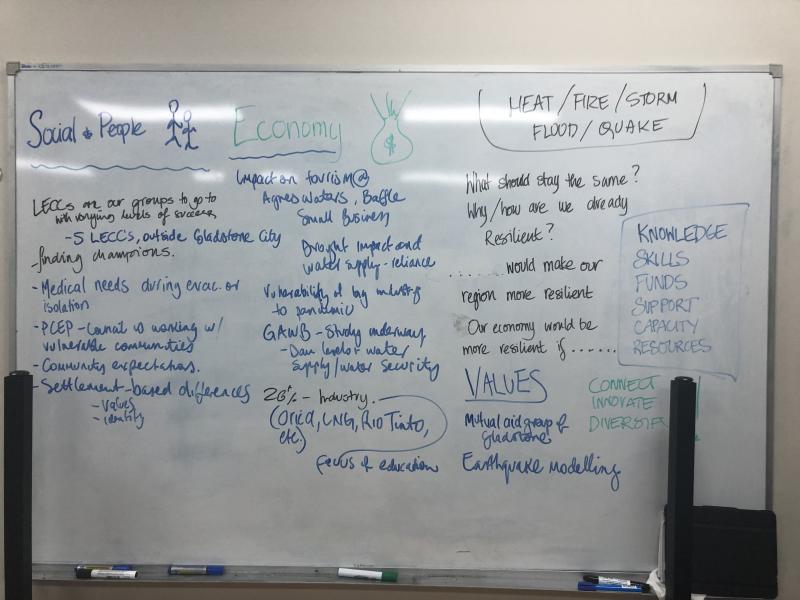 Social & People
LECCs are our groups to go to
with varying levels of success
- 5 LECCs, outside Gladstone City
- finding champions.
- Medical needs during evac. or
isolation
- PCEP - Council is working w/
vulnerable communities
- Community expectations.
- Settlement-based differences
- values
- identity
Economy
$
Impact on tourism @
Agnes Waters, Baffle
Small Business
Drought impact and
water supply - reliance
Vulnerability of big industry
to pandemic
GAWB - Study underway
- Dam levels & water
supply/water security
- Industry.
(Orica, LNG, Rio Tinto,
etc.)
focus of education
HEAT / FIRE / STORM
FLOOD / QUAKE
What should stay the same?
Why/how are we already
Resilient?
........ would make our
region more resilient
Our economy would be
more resilient if .......
VALUES
Mutual aid group of
Gladstone
Earthquake modelling
KNOWLEDGE
SKILLS
FUNDS
SUPPORT
CAPACITY
RESOURCES
CONNECT
INNOVATE